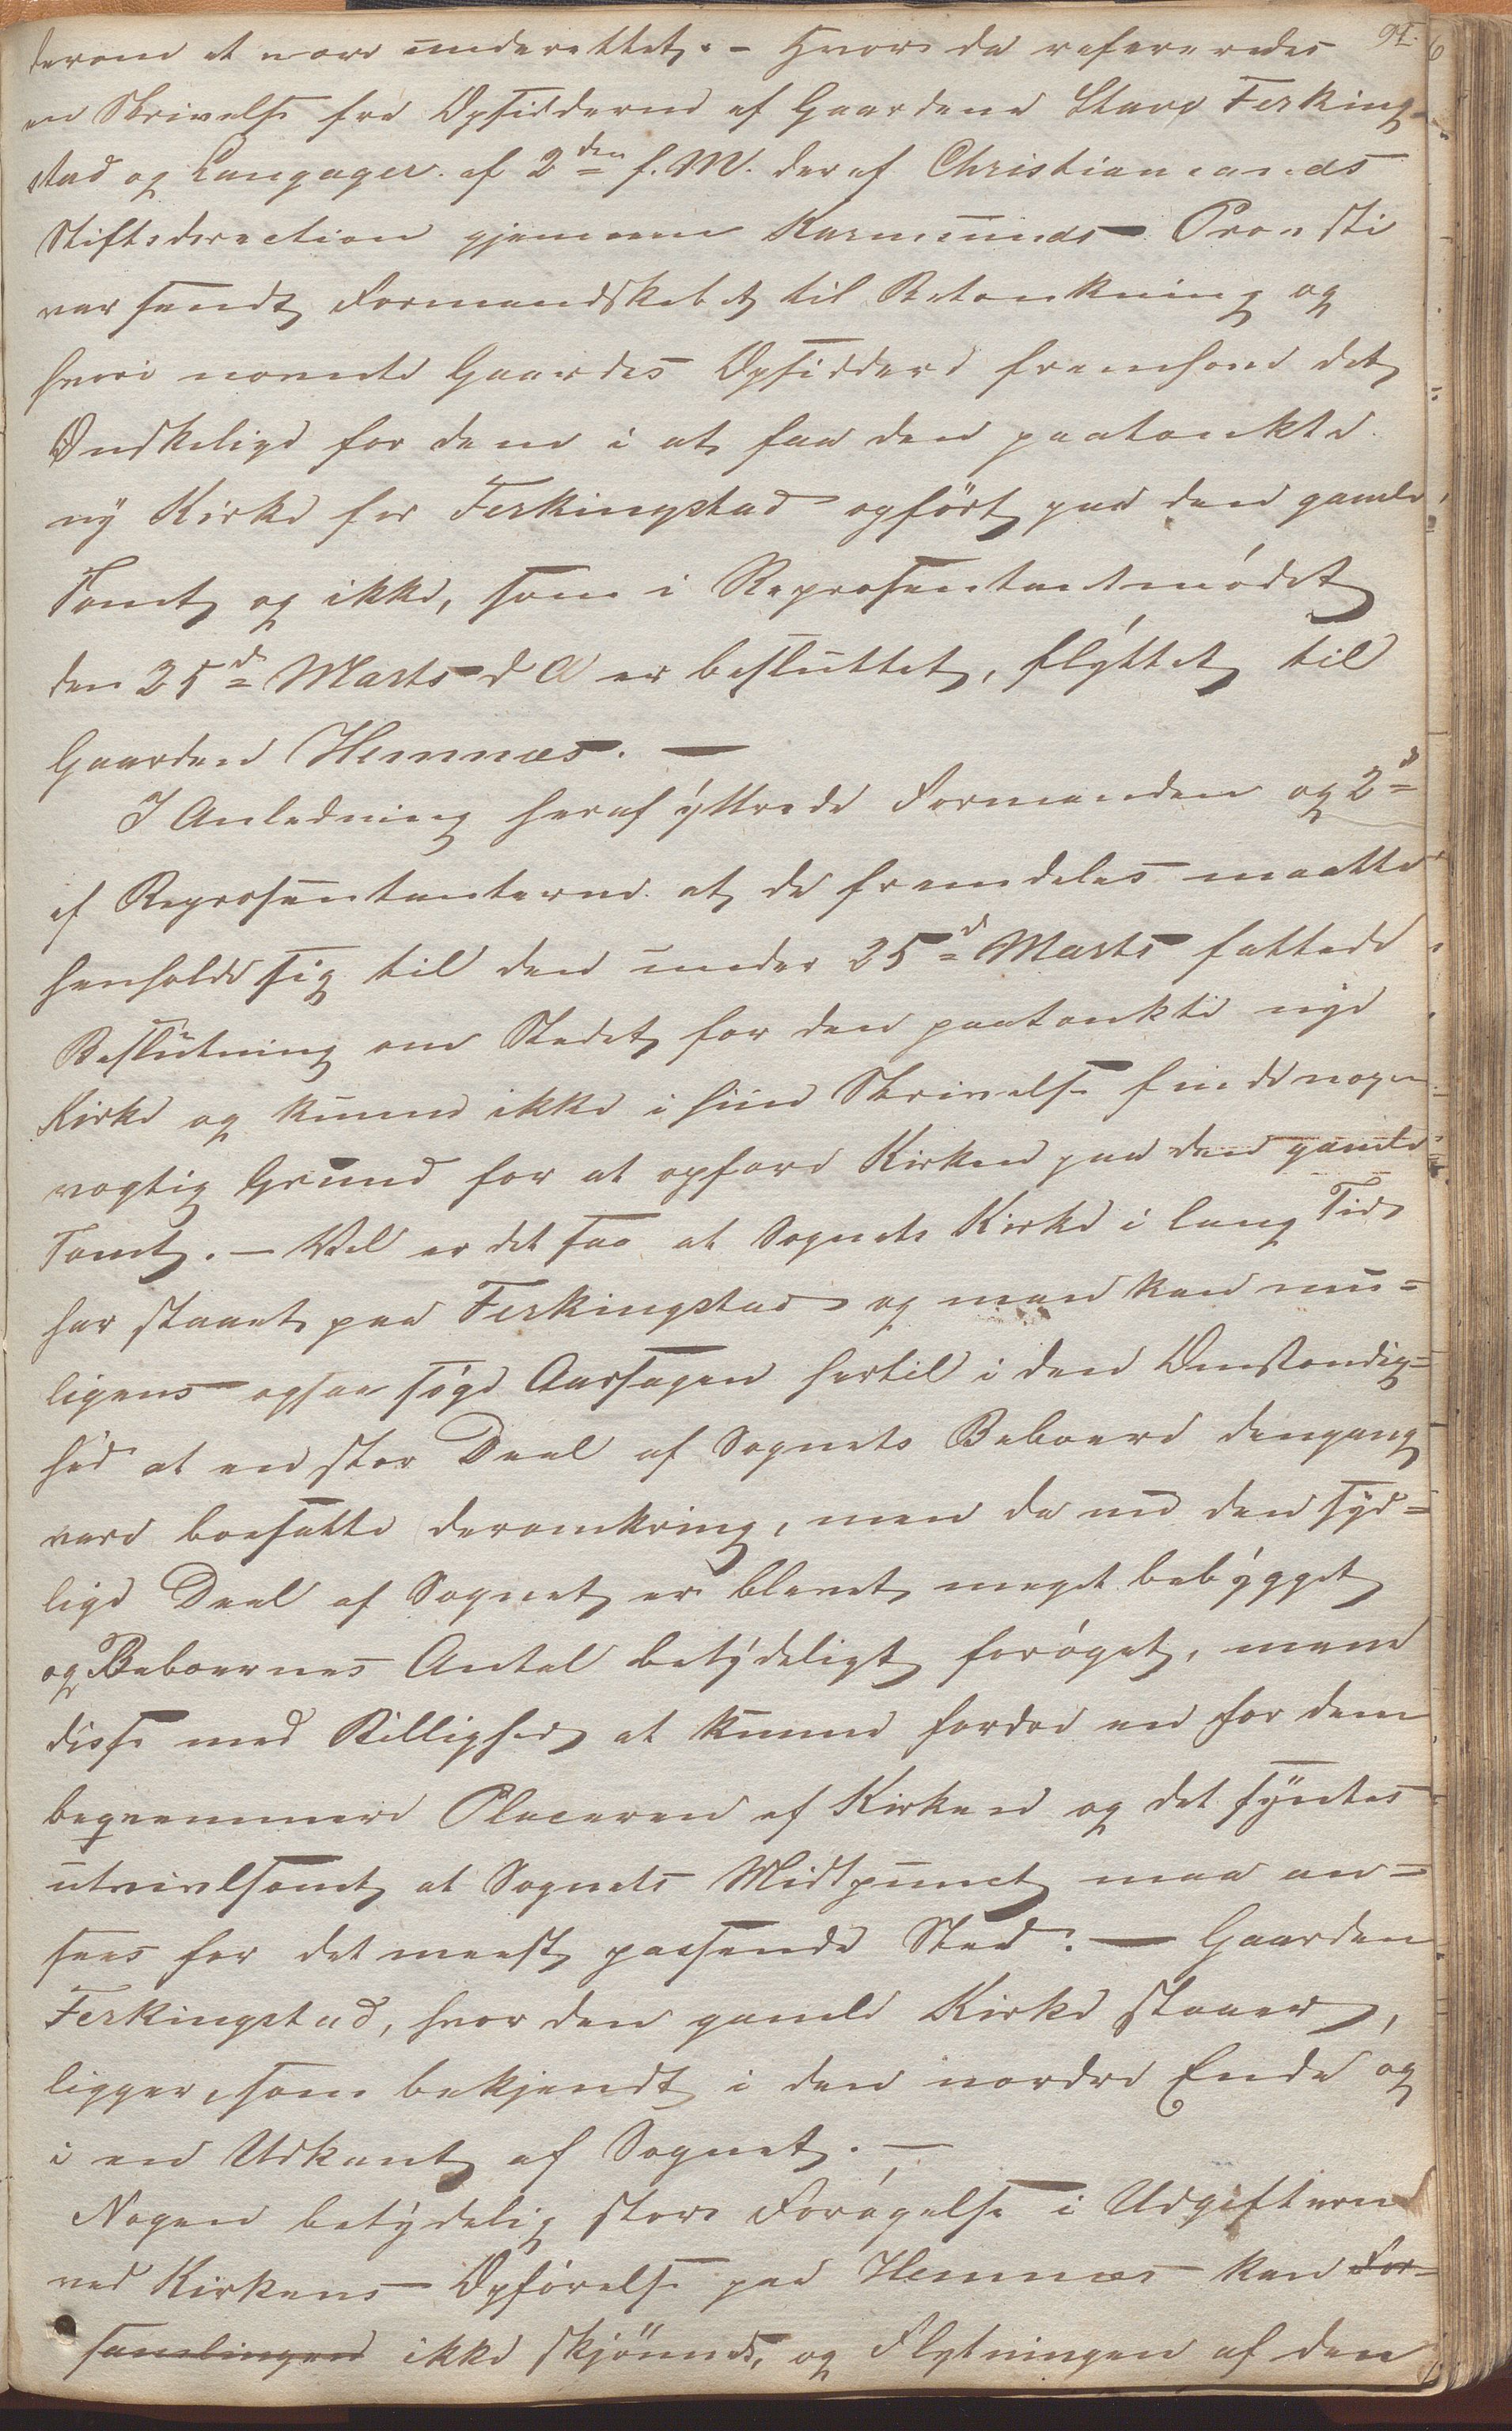 91.
derom at være underrettet. – Hvor da refereredes
en Skrivelse fra Opsidderne af Gaardene Stava Ferking-
stad og Langager af 2den f. M. der af Christiansands
Stiftsdirection gjennem Karmsunds Provsti
var sendt Formandskabet til Betænkning og
hvori nævnte Gaardes Opsiddere fremhæve det
Ønskelige for dem i at faa den paatænkte
ny Kirke for Ferkingstad opført paa den gamle
Tomt og ikke, som i Repræsentantmødet
den 25de Marts d A er besluttet, flyttet til
Gaarden Hemnæs. —
I Anledning heraf yttrede Formanden og 2de
af Repræsentanterne at de fremdeles maatte
henholde sig til den under 25de Marts fattede
Beslutning om Stedet for den paatænkte nye
Kirke og kunne ikke i hiin Skrivelse finde nogen
vægtig Grund for at opføre Kirken paa den gamle
Tomt. — Vel er det saa at Sognets Kirke i lang Tid
har staaet paa Ferkingstad og man kan rime-
ligens ogsaa søge Aarsagen hertil i den Omstændig-
hed at en stor Deel af Sognets Beboere dengang
vare bosatte deromkring, men da nu den syd-
lige Deel af Sognet er blevet meget bebygget
og Beboernes Antal betydeligt forøget, mene
disse med Billighed at kunne fordre en for dem
beqvemmere Placeren af Kirken og det syntes
utvivlsomt at Sognets Midtpunct maa an-
sees for det meest passende Sted. — Gaarden
Ferkingstad, hvor den gamle Kirke staaer,
ligger, som bekjendt i den nordre Ende og
i en Udkant af Sognet. —
Nogen betydelig stor Forøgelse i Udgifterne
ved Kirkens Opførelse paa Hemnæs kan For-
samlingen ikke skjønnes, og Flytningen af den